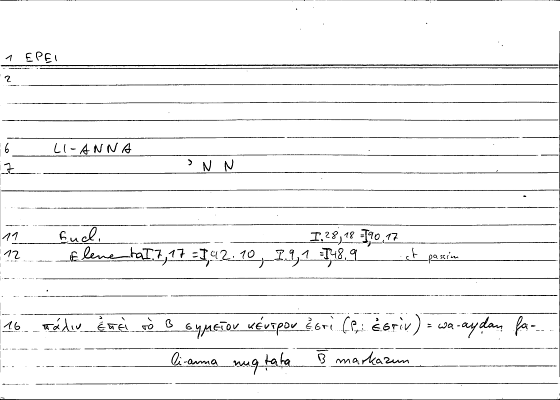 1 EPEI
2
6 LI-ANNA
7 ʾ N N
11 Eucl. I.28,18 = I,90.17
12 Elementa I.7,17 = I,42.10, I.9,1 = I,48.9 et passim
16 πάλιν ἐπεὶ τὸ B σημεῖον κέντρον ἐστὶ (P.: ἐστίν) = wa-ayḍan fa-
li-anna nuqṭata B̄ markazun